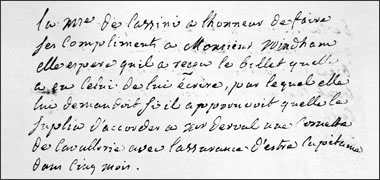 la Mse de Cassini a l'honneur de faire
ses compliments a Monsieur Windham
elle espere qu'il a reçeu le billet quell
a eu celui de lui écrire, par lequel elle
lui demandoit s'il approuvoit quelle le
suplia d'accorder a Mr Derval une Cornette
de Cavallerie avec l'assurance d'estre Capitaine
dans cinq mois.